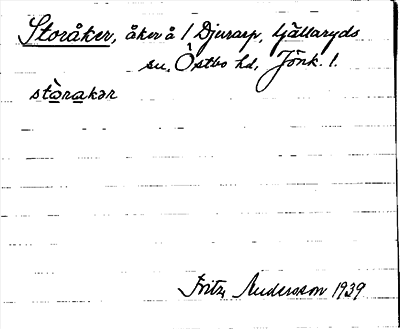 Storåker, åker å 1 Djurarp, Kjällaryds
sn. Östbo hd, Jönk. l.
stòrakər
Fritz Andersson 1939